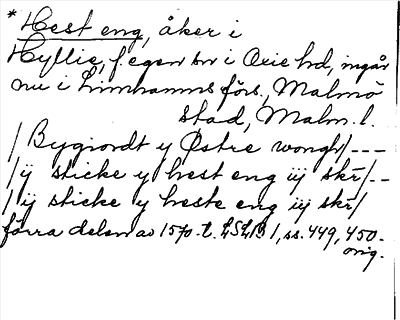 * Hest eng, åker i
Hyllie, f. egen sn i Oxie hd, ingår
nu i Limhamns förs., Malmö
stad, Malm. l.
/ Bygiordt y Østre wongh/ ---
/ ÿ sticke y hest eng iij skr̄/--
/ ÿ sticke y heste eng iij skr̄/
förra delen av 1570-t. LSLB 1, ss. 449, 450.
orig.